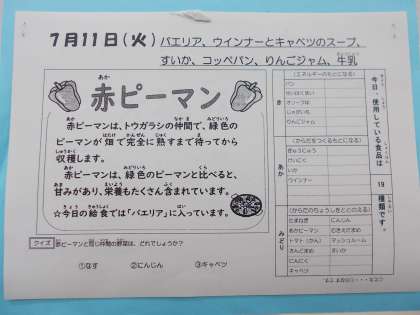 7月11日(火) パエリア、ウインナーとキャベツのスープ、
すいか、コッペパン、りんごジャム、牛乳
赤ピーマン
赤ピーマンは、トウガラシの仲間で、緑色の
ピーマンが畑で完全に熟すまで待ってから
収穫します。
赤ピーマンは、緑色のピーマンと比べると、
甘みがあり、栄養もたくさん含まれています。
☆今日の給食では「パエリア」に入っています。
クイズ 赤ピーマンと同じ仲間の野菜は、どれでしょうか?
①なす ②にんじん ③キャベツ
今日、使用している食品は
19
種類です。
き
(エネルギーのもとになる)
パン
オリーブ油
じゃがいも
りんごジャム
あか
(からだをつくるもとになる)
ぎゅうにゅう
けいにく
いか
ウインナー
みどり
(からだのちょうしをととのえる)
たまねぎ にんじん
あかピーマン むきえだまめ
トマト(かん) マッシュルーム
さんどまめ すいか
にんにく
キャベツ